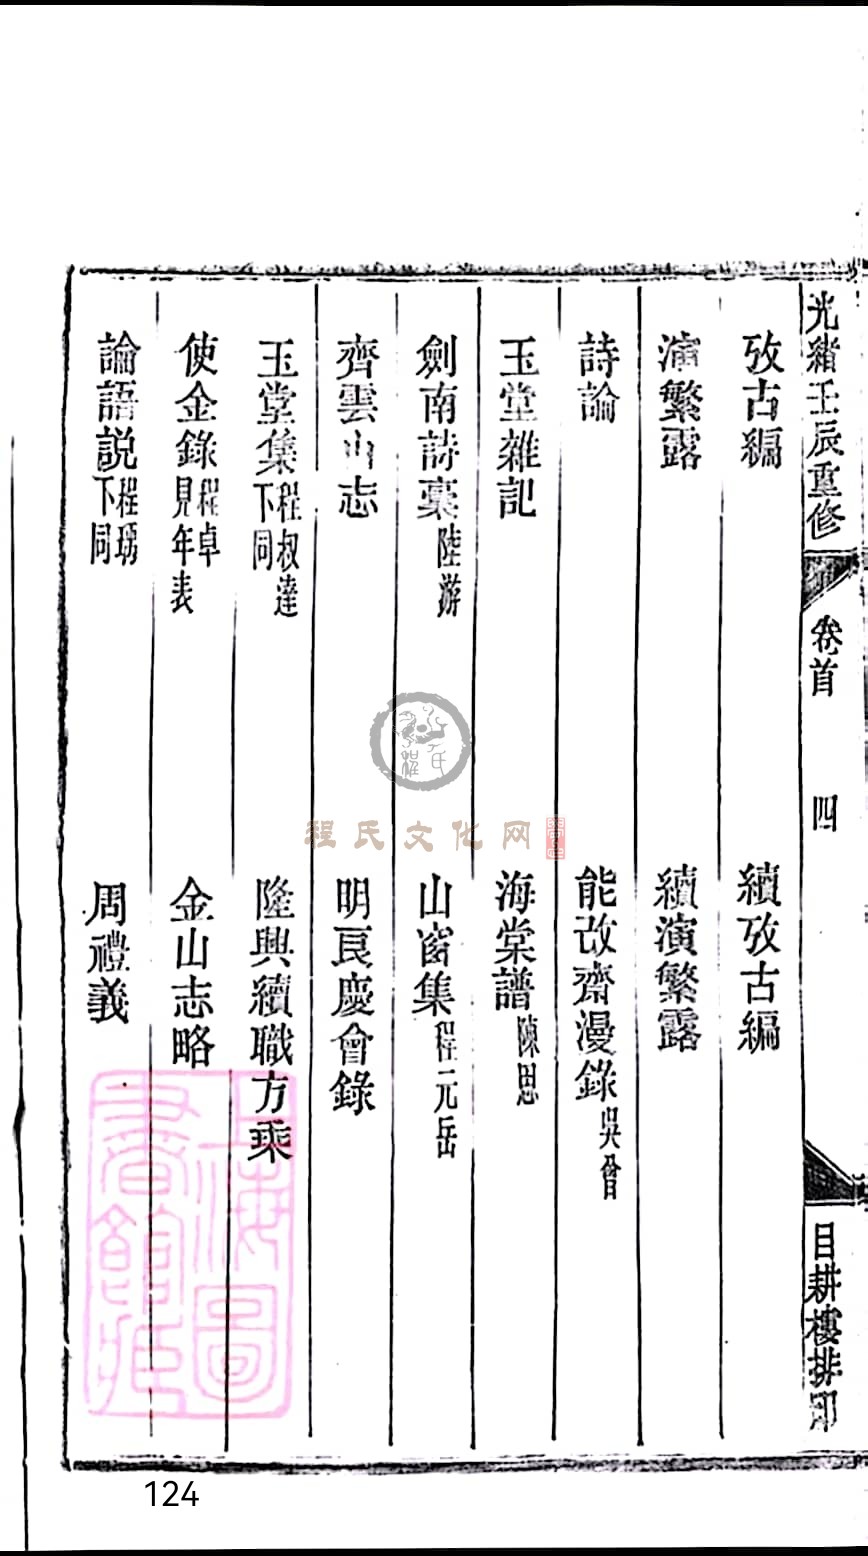 光緒壬辰重修
卷首
四
目耕樓排印
攷古編
續攷古編
演繁露
續演繁露
詩論
能改齋漫錄吳曾
玉堂雜記
海棠譜陳思
劍南詩稾陸游
山窗集程元岳
齊雲山志
明良慶會錄
玉堂集程叔達下同
隆興續職方乘
使金錄程卓見年表
金山志略
論語說程瑀下同
周禮義
程氏文化网
上海圖書館藏
124